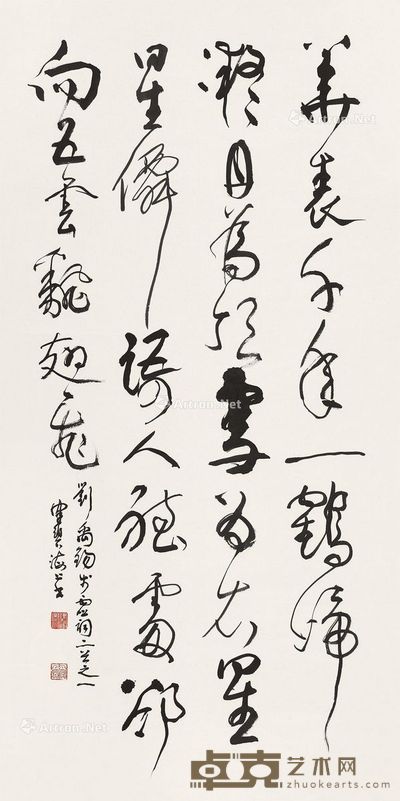 華表千年一鶴歸
凝丹為頂雪為衣星
星僊語人聽盡卻
向五雲飜翅飛
劉禹錫步虛詞二首之一
健碧
Artron.Net
Artron.Net
Artron.Net
卓克艺术网
zhuokearts.com